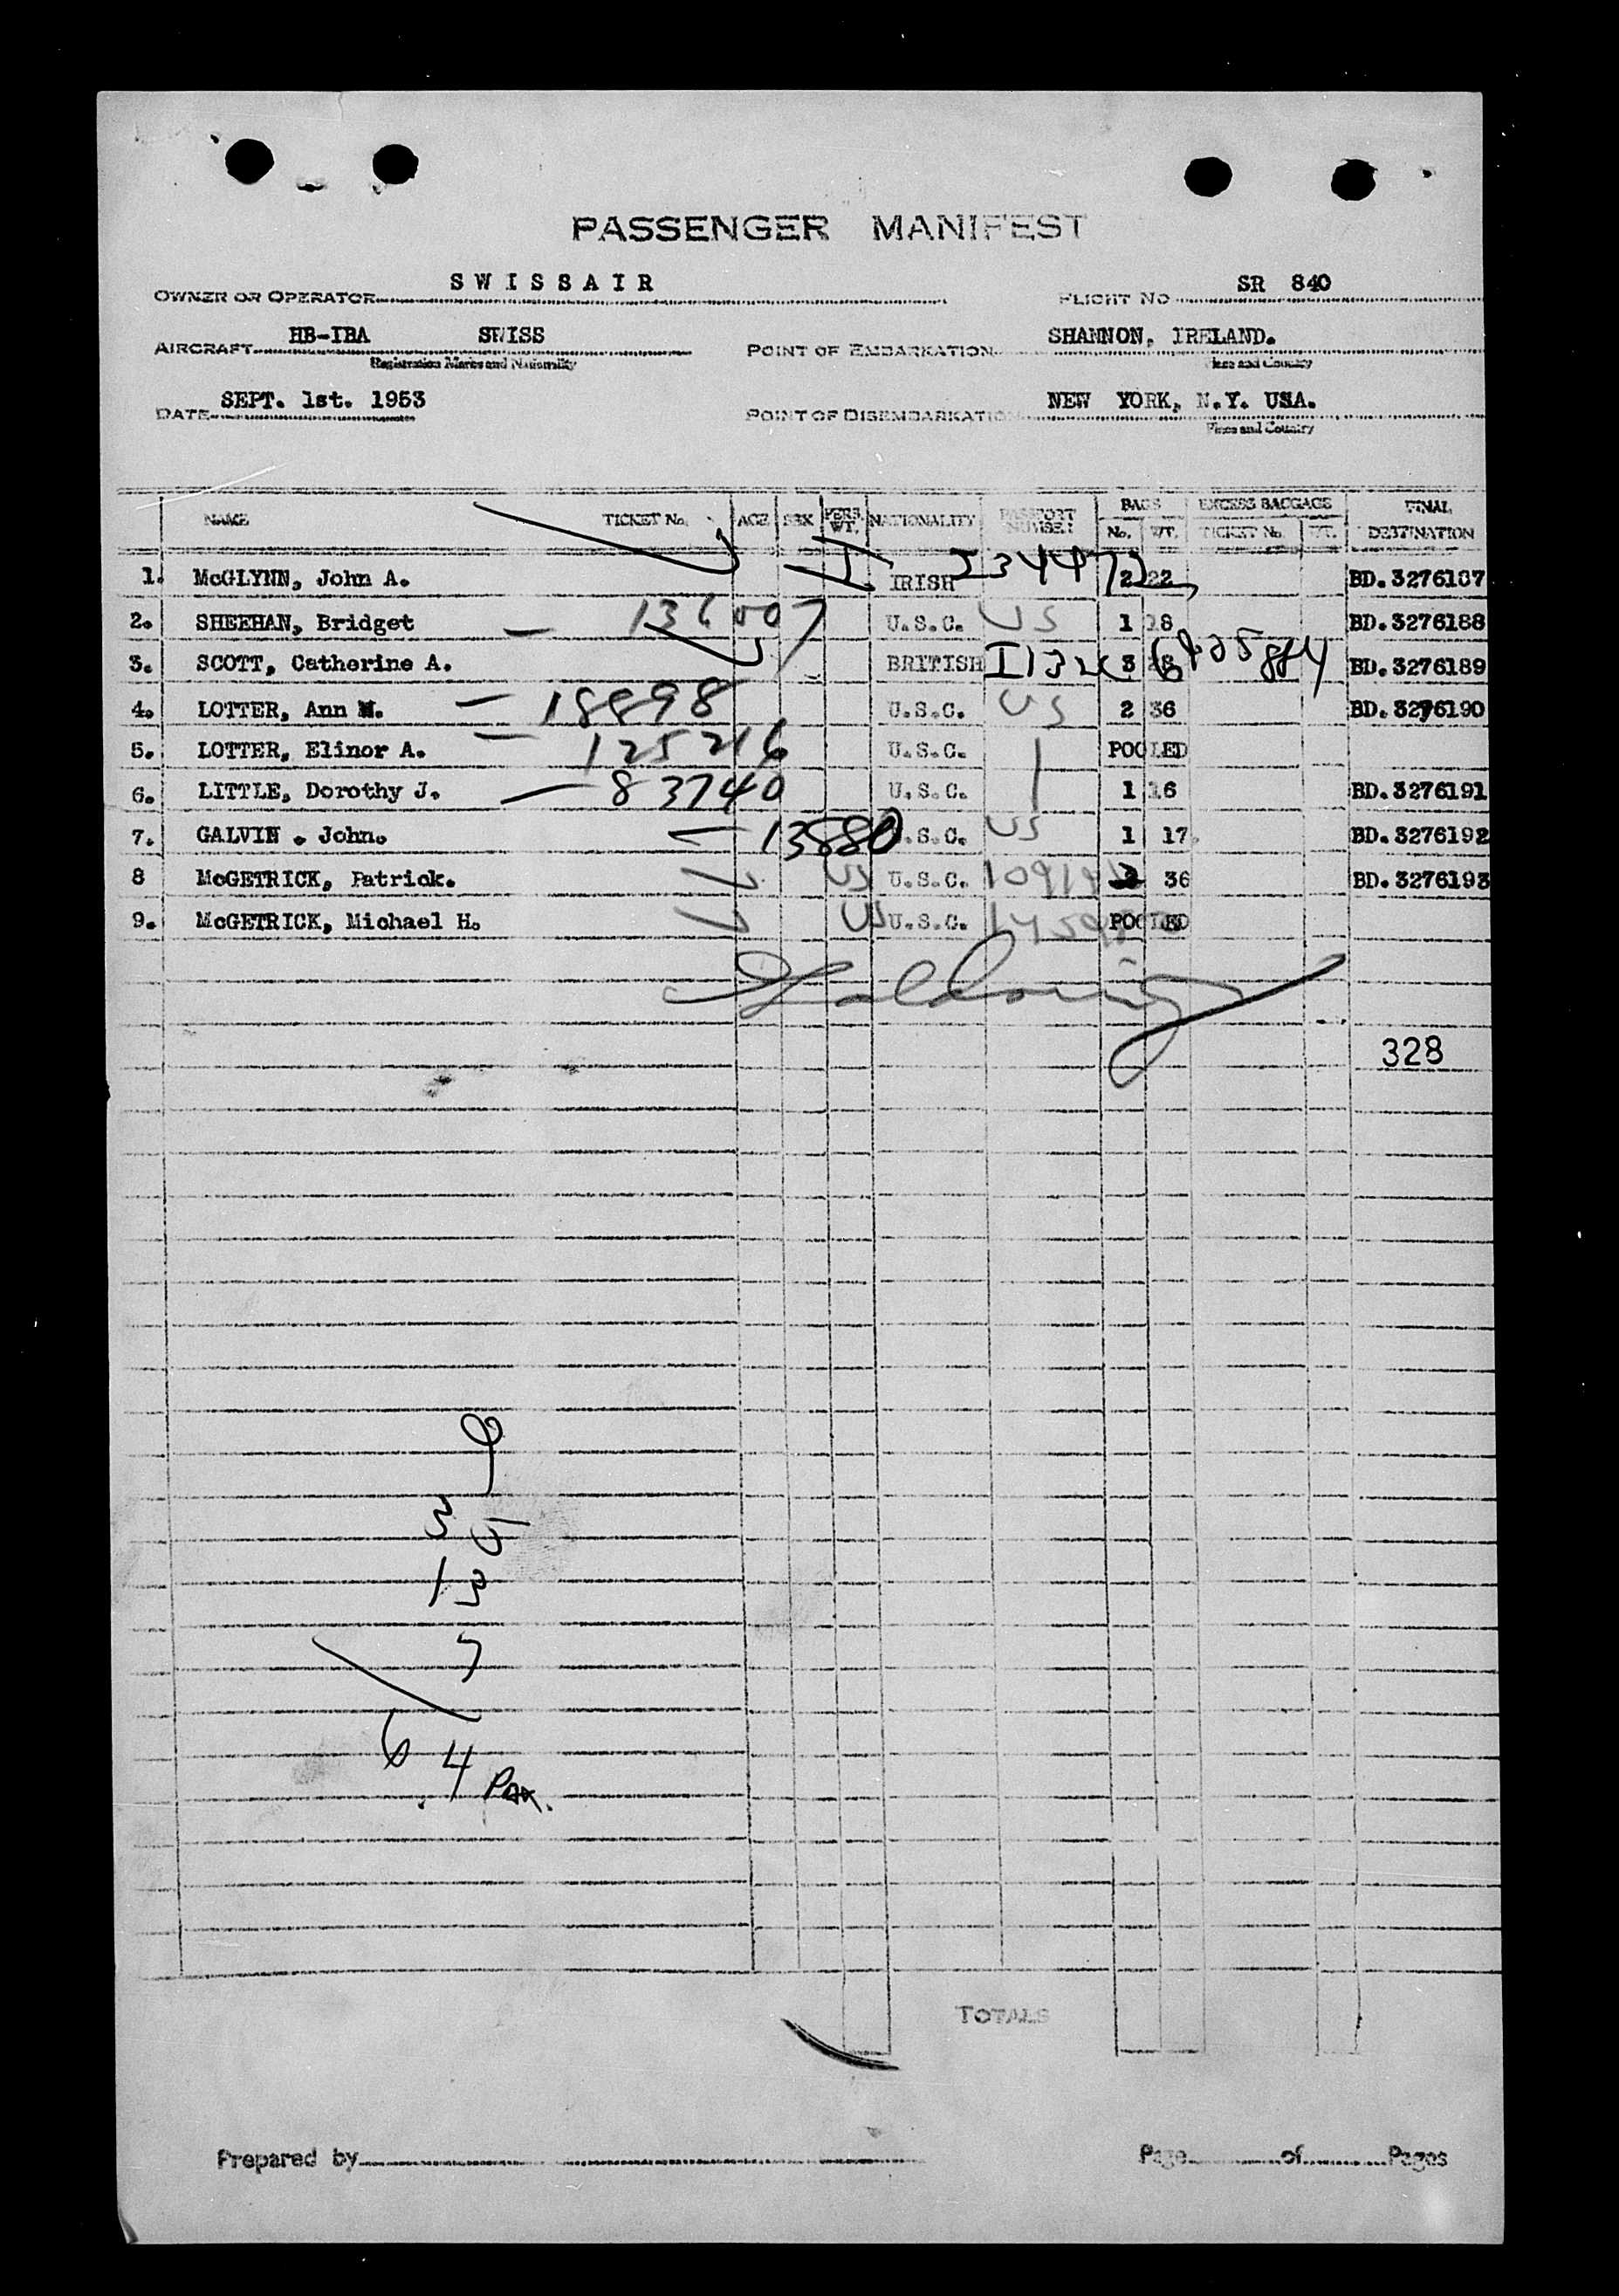 PASSENGER MANIFEST
OWNER OR OPERATOR SWISSAIR FLIGHT NO SR 840
AIRCRAFT HB-IBA SWISS POINT OF EMBARKATION SHANNON, IRELAND.
Registration Marks and Nationality Place and Country
DATE SEPT. 1st. 1953 POINT OF DISEMBARKATION NEW YORK, N.Y. USA.
Place and Country
NAME TICKET No. AGE SEX PERS. WT. NATIONALITY PASSPORT NUMBER BAGS No. WT. EXCESS BAGGAGE TICKET No. WT. FINAL DESTINATION
1. McGLYNN, John A. I IRISH 2 22 BD.3276187
2. SHEEHAN, Bridget U.S.C. US 1 18 BD.3276188
3. SCOTT, Catherine A. BRITISH 3 BD.3276189
4. LOTTER, Ann M. 18898 U.S.C. US 2 36 BD.3276190
5. LOTTER, Elinor A. 125216 U.S.C. POOLED
6. LITTLE, Dorothy J. 83740 U.S.C. 1 16 BD.3276191
7. GALVIN . John. 13880 .S.C. US 1 17. BD.3276192
8 McGETRICK, Patrick. US U.S.C. 36 BD.3276193
9. McGETRICK, Michael H. US U.S.C. POOLED
328
9
35
13
7
64 Pax.
TOTALS
Prepared by Page of Pages